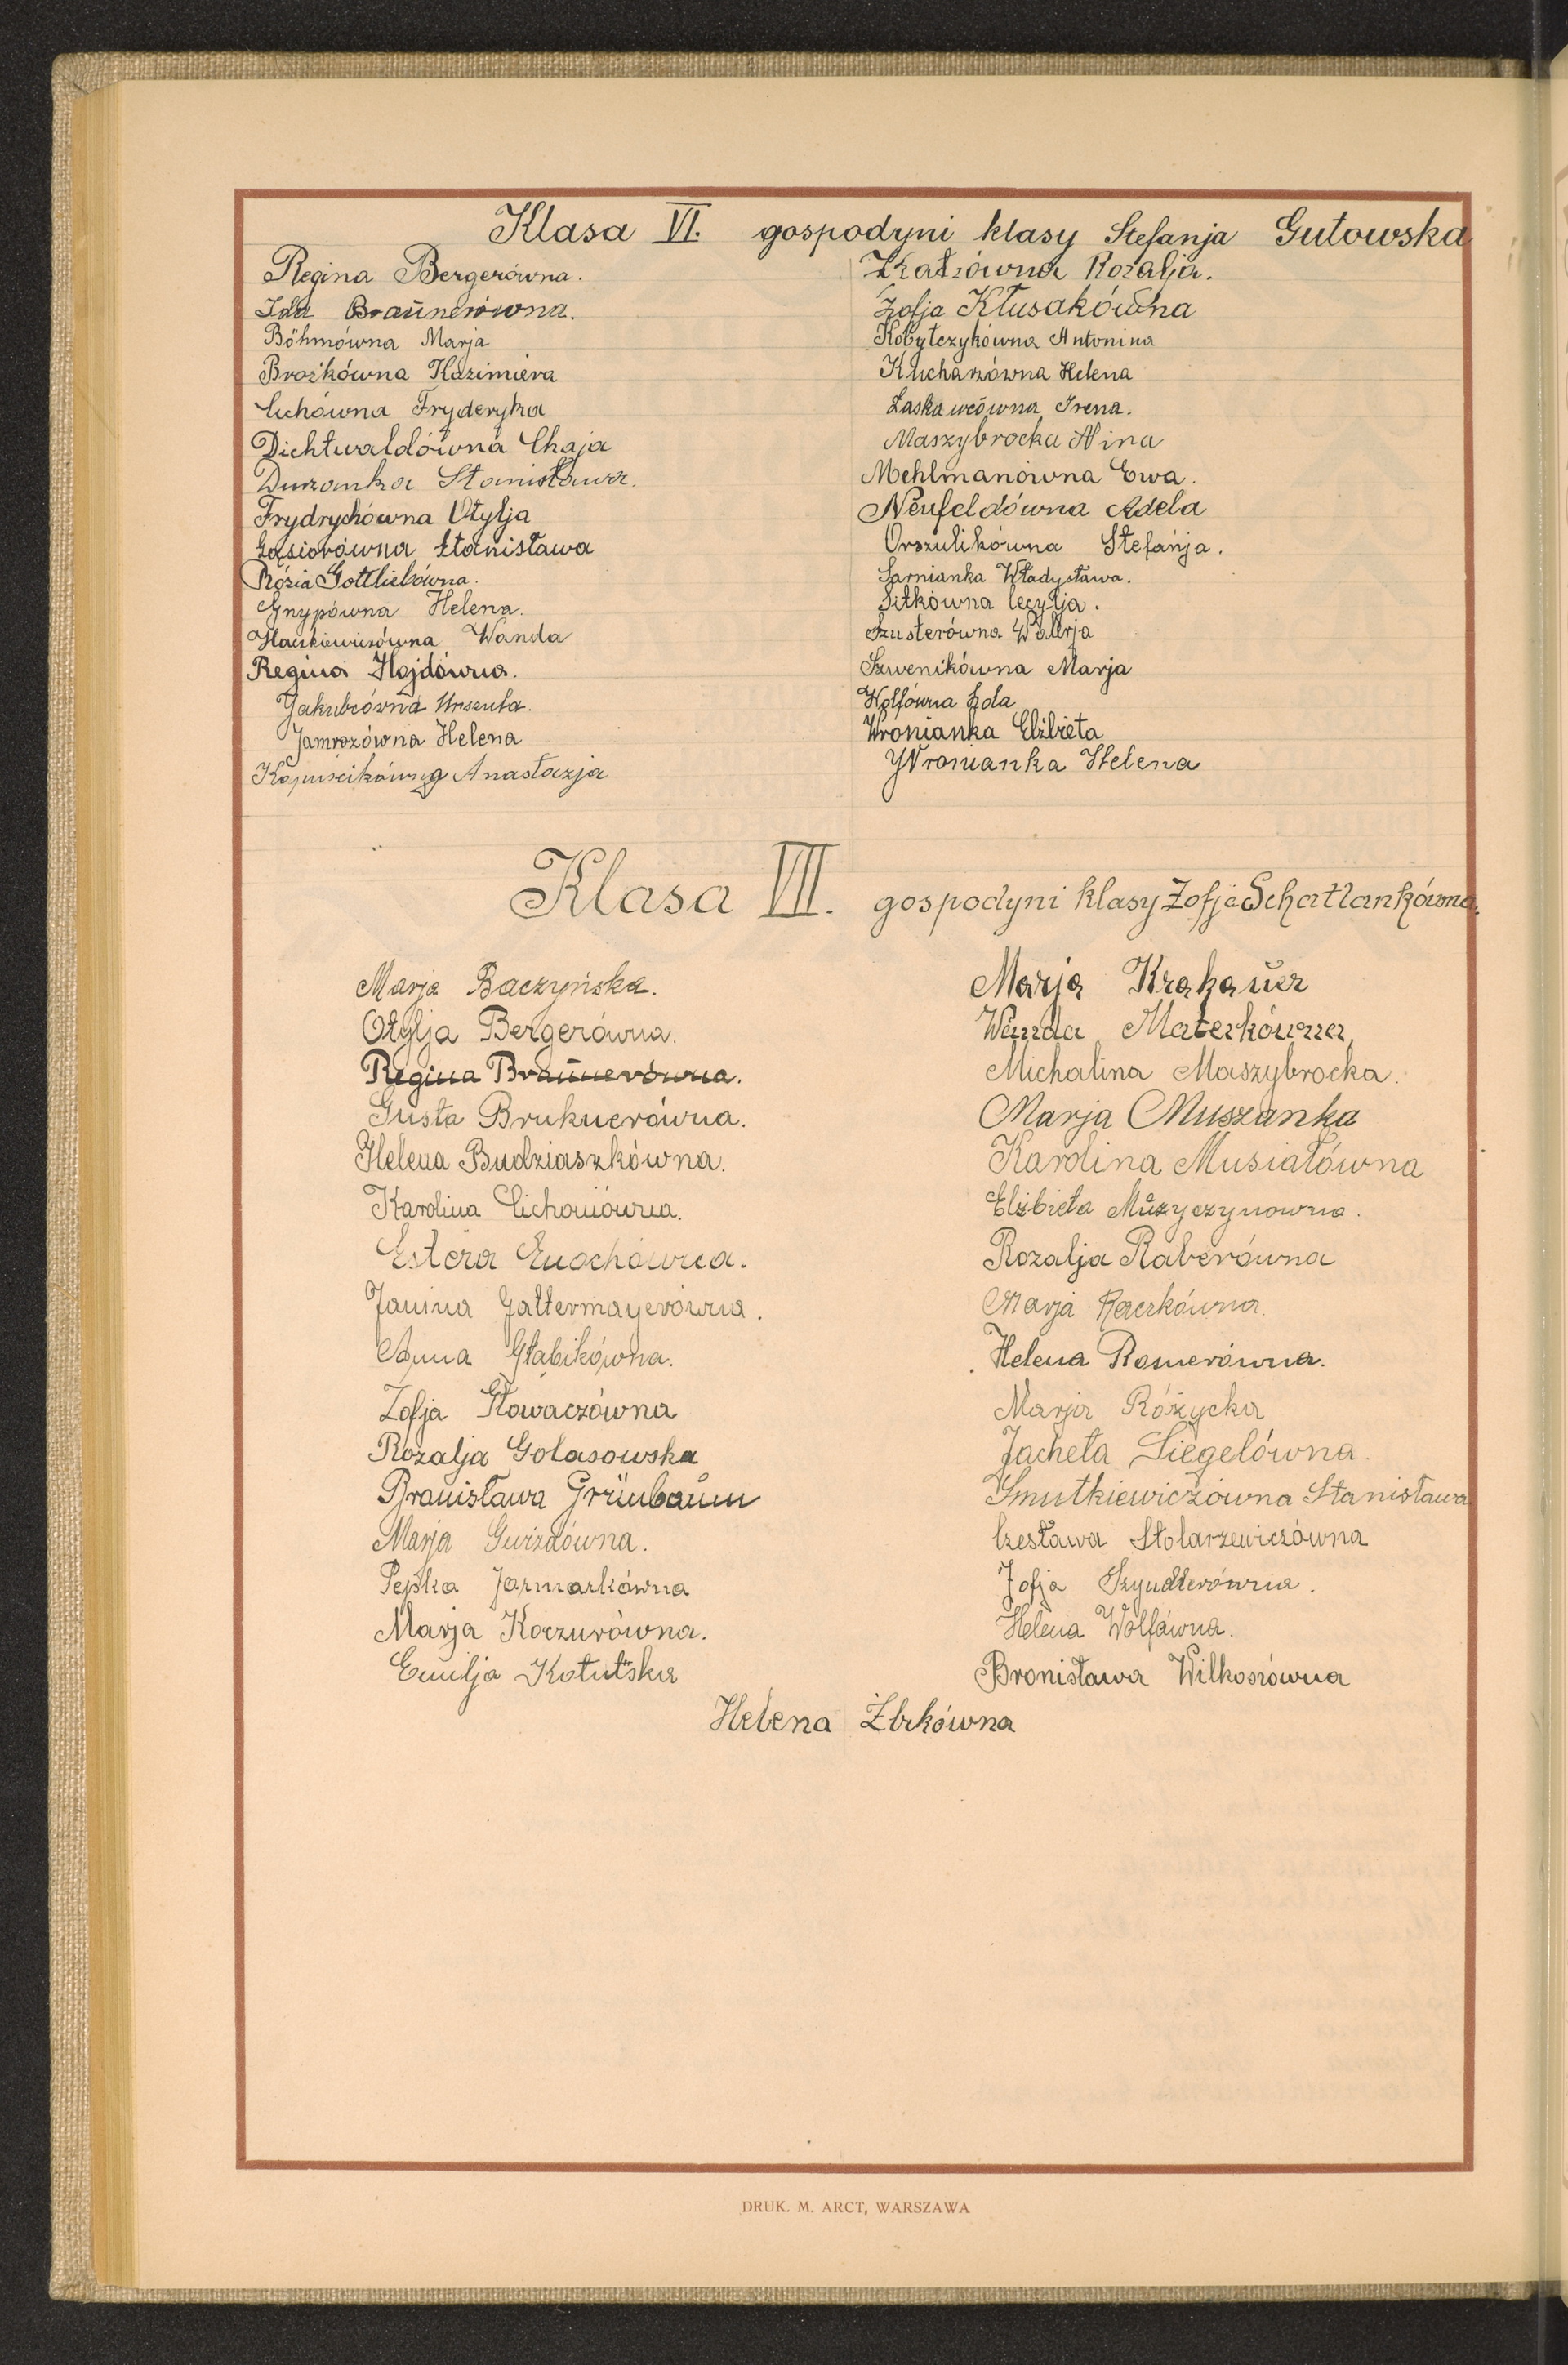 Klasa VI. gospodyni klasy Stefanja Gutowska
Regina Bergerówna.
Ida Braünerówna.
Böhmówna Marja
Brożkówna Kazimiera
Cichówna Fryderyka
Dichtwaldówna Chaja
Duranka Stanisława.
Frydrychówna Otylja
Gąsiorówna Stanisława
Rózia Gottliebówna.
Gnypówna Helena.
Haczkiewiczówna Wanda
Regina Hajdówna.
Jakubcówna Urszula.
Jamrozówna Helena
Kapuścikówna Anastazja
Katzówna Rozalja.
Zofja Kłusakówna
Kobylczykówna Antonina
Kucharzówna Helena
Laskawcówna Irena.
Maszybrocka Nina
Mehlmanówna Ewa.
Neufeldówna Adela
Orszulikówna Stefanja.
Sarnianka Władysława.
Sitkówna Cecylja.
Szusterówna Walerja
Szwenikówna Marja
Wolfówna Lola
Wronianka Elżbieta
Wronianka Helena
Klasa VII. gospodyni klasy Zofja Schatzankówna.
Marja Baczyńska.
Otylja Bergerówna.
Regina Braunerówna.
Gusta Bruknerówna.
Helena Budziaszkówna.
Karolina Cichoniówna.
Estera Enochówna.
Janina Gattermayerówna.
Anna Głabikówna.
Zofja Głowaczówna
Rozalja Golasowska
Bronisława Grünbaum
Marja Gwizdówna.
Pepka Jarmarkówna
Marja Koczurówna.
Emilja Kotulska
Marja Krakauer
Wanda Materkówna,
Michalina Maszybrocka.
Marja Muszanka
Karolina Musiałówna
Elżbieta Muzyczynowna.
Rozalja Raberówna
Marja Raczkówna.
Helena Rosnerówna.
Marja Różycka
Jacheta Siegelówna.
Smutkiewiczówna Stanisława
Czesława Stolarzewiczówna
Zofja Szyndlerówna.
Helena Wolfówna.
Bronisława Wilkoszówna
Helena Żbikówna
DRUK. M. ARCT, WARSZAWA